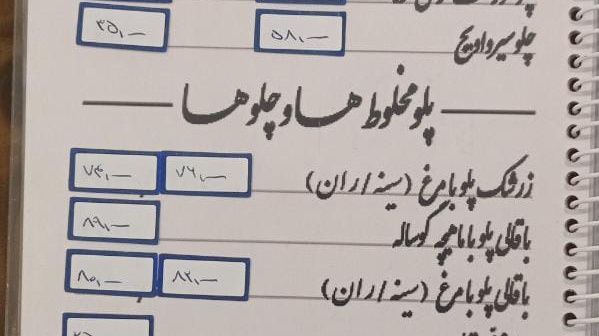 چلو سیر و اویج ۵۸،— ۳۵،—
پلو مخلوط ها و چلوها
زرشک پلو با مرغ (سینه / ران) ۷۶،— ۷۳،—
باقالی پلو با ماهیچه گوساله ۸۹،—
باقالی پلو با مرغ (سینه / ران) ۸۲،— ۸۰،—